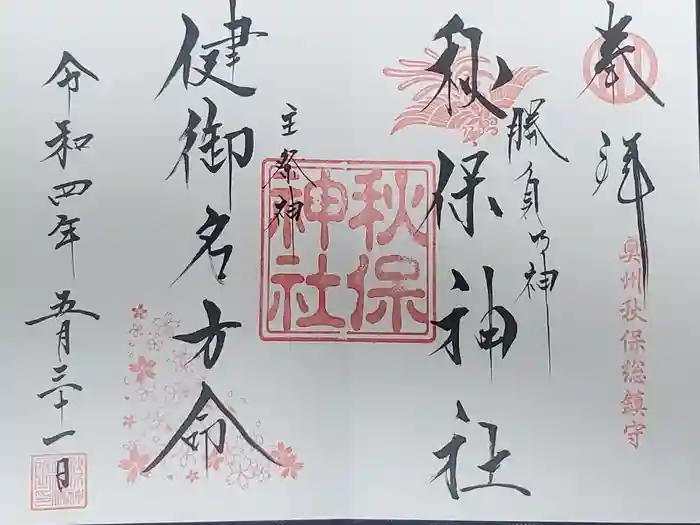 奉拝
奥州秋保総鎮守
勝負の神
秋保神社
秋保神社
主祭神
健御名方命
令和四年五月三十一日